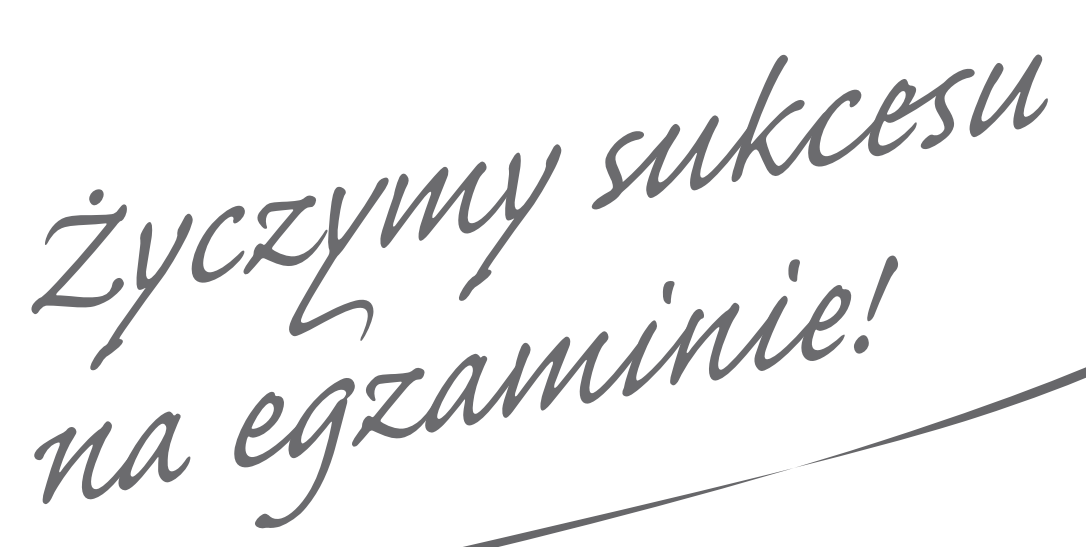 Życzymy sukcesu
na egzaminie!